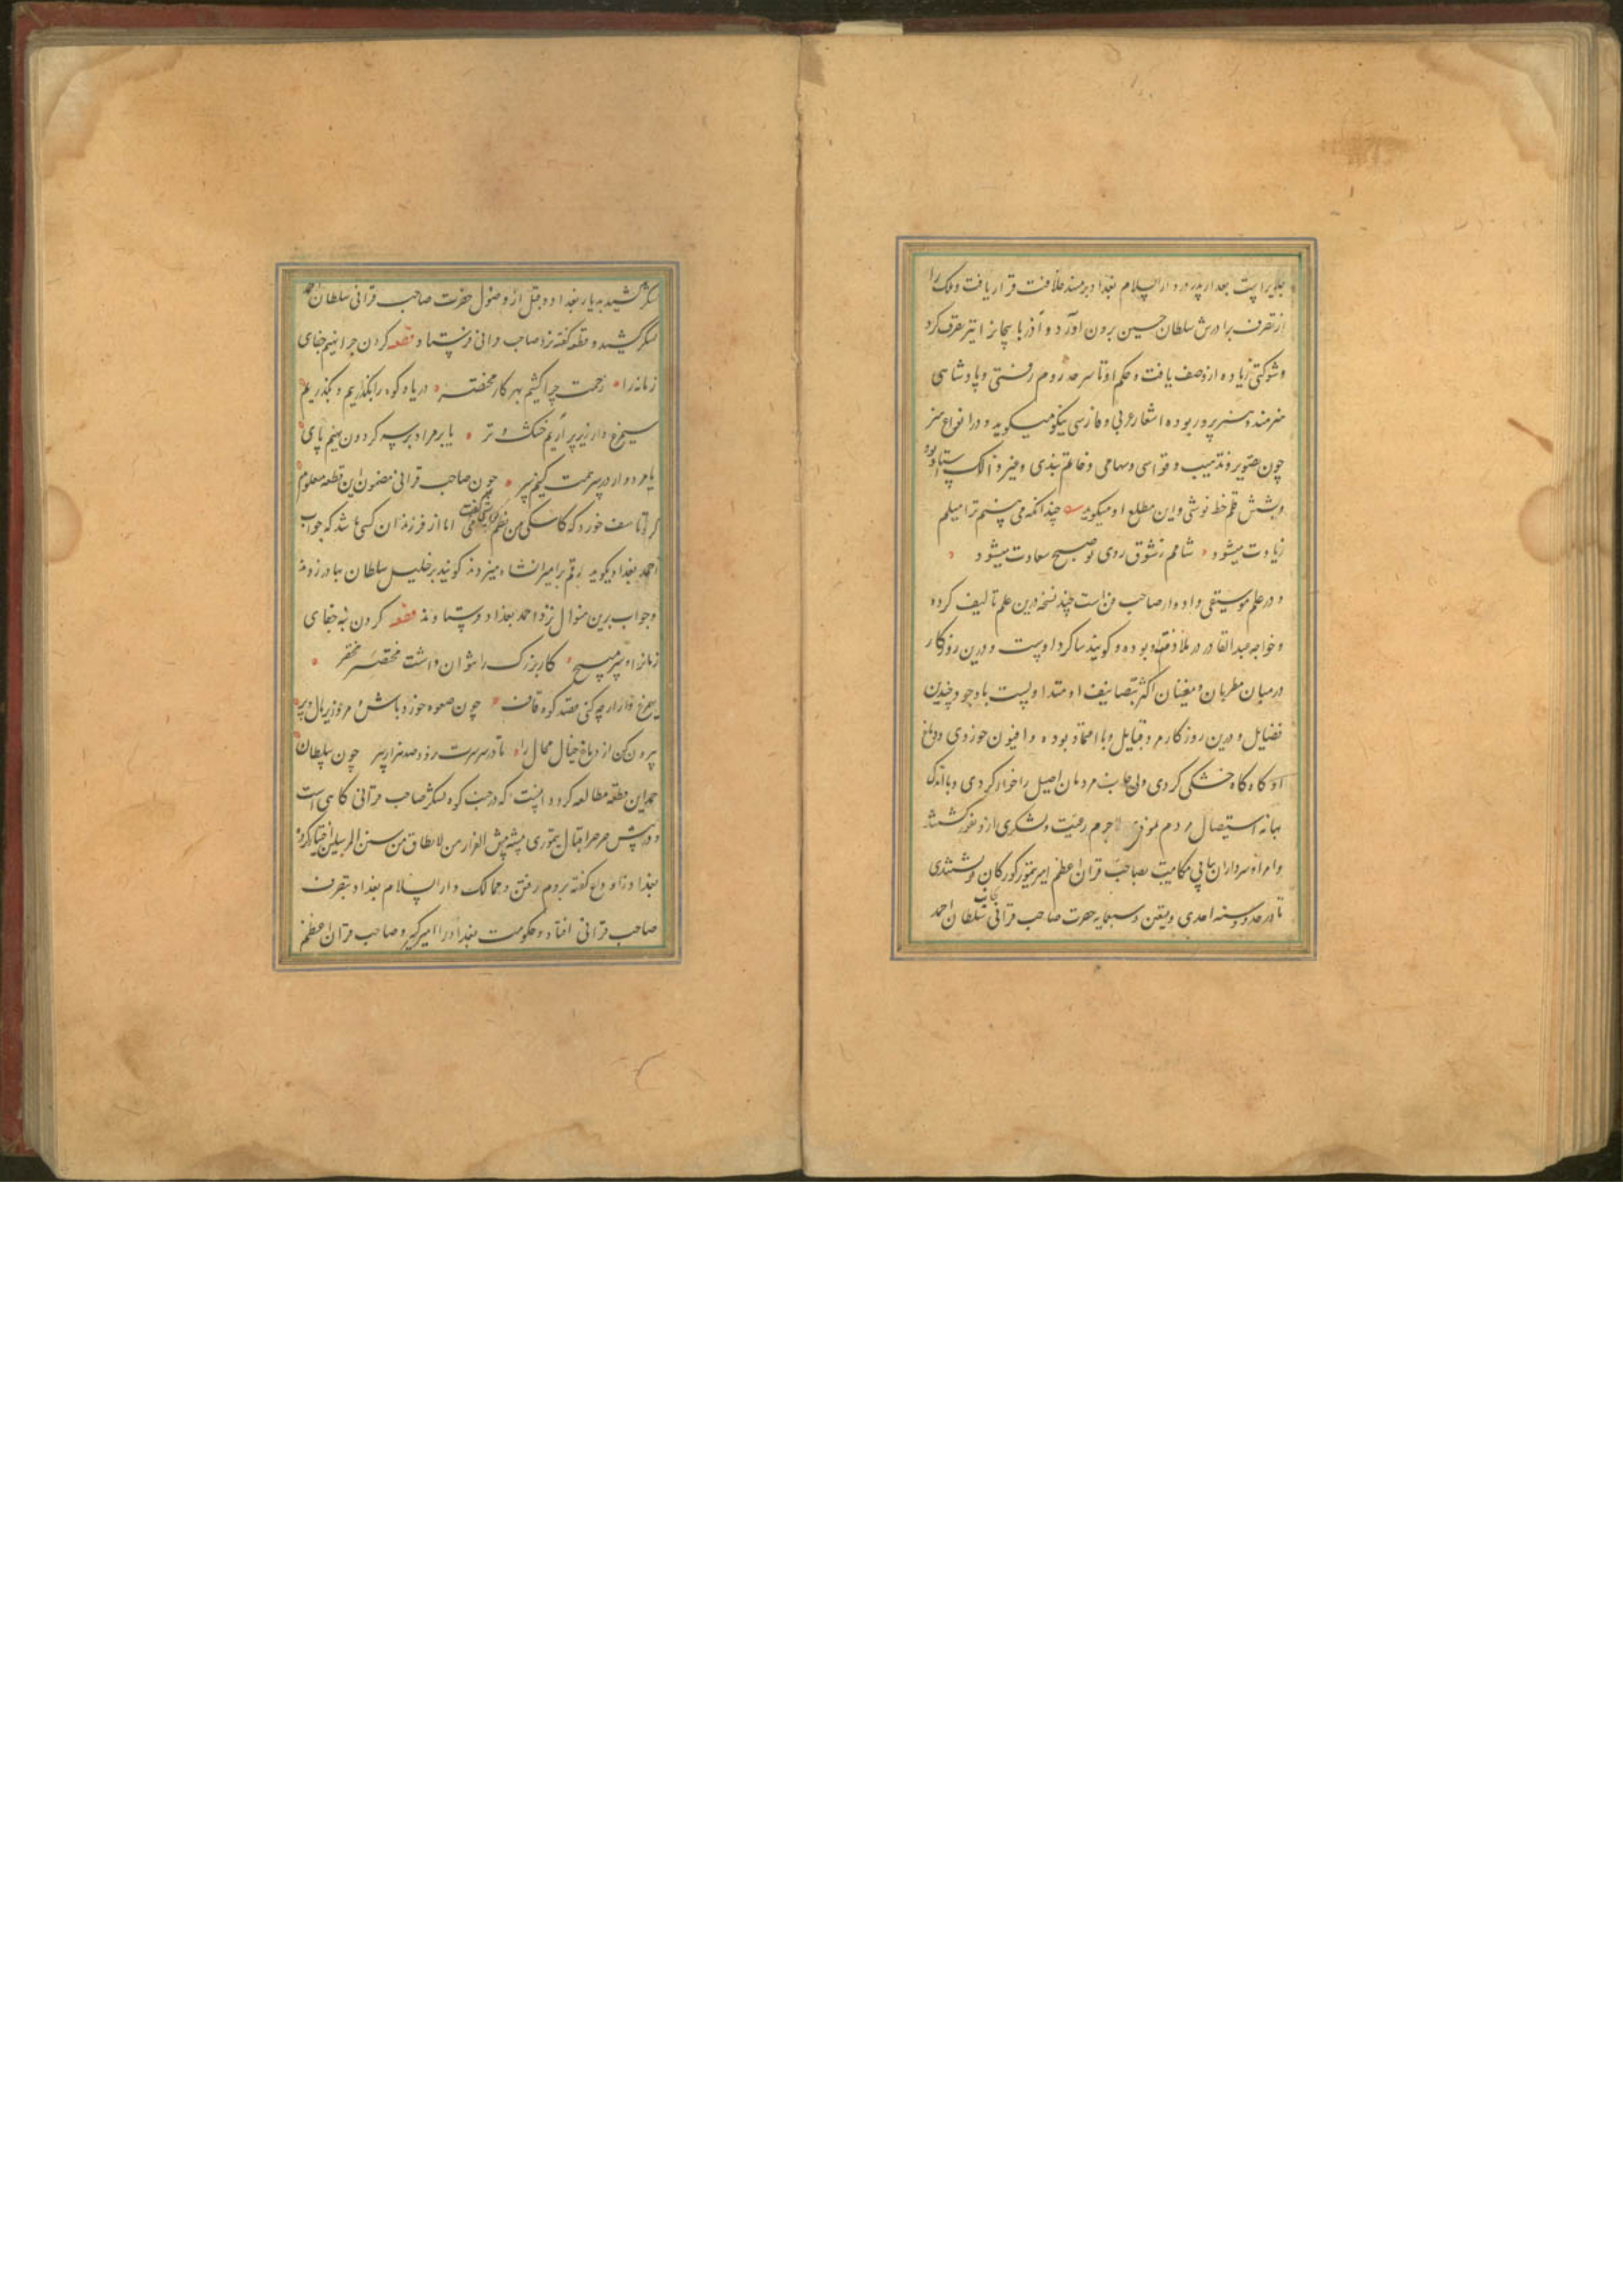 جلایر است بعد از پدر در دار السلام بغداد بر مسند خلافت قرار یافت و ملک را
از تصرف برادرش سلطان حسین برون آورد و آذربایجان را نیز تصرف کرد
و شوکتی زیاده از وصف یافت و حکم او تا سرحد روم رفتی و پادشاهی
هنرمند و هنرپرور بوده اشعار عربی و فارسی نیکو میگوید و در انواع هنر
چون تصویر و تذهیب و قواسی و سهامی و خاتم بندی و غیر ذالک استاد بوده
و بشش قلم خط نوشتی و این مطلع او میگوید چندانکه می بینم ترا میلم
زیادت میشود شامم ز شوق روی تو صبح سعادت میشود
و در علم موسیقی و ادوار صاحب فن است چند نسخه درین علم تالیف کرده
و خواجه عبد القادر در ملازمت او بوده و گویند شاگرد اوست و درین روزگار
در میان مطربان و مغنیان اکثر تصانیف او متداولست با وجود چندین
فضایل و درین روزگار مرد قتایل و با اعتماد بوده و افیون خوردی و دماغ
او گاه گاه خشکی کردی و بی جانب مردمان اصیل را خوار کردی و باندک
بهانه استیصال مردم نمودی لاجرم رعیت و لشکری ازو نفور گشتند
و امرا و سرداران پیاپی مکاتیب بصاحب قران اعظم امیر تیمور کورکان نوشتندی
تا در حدود سنه احدی و تسعین و سبعمایه حضرت صاحب قرانی بجانب سلطان احمد
لشکر کشید بدیار بغداد و قبل از وصول حضرت صاحب قرانی سلطان احمد
لشکر کشید و قطعه گفته نزد صاحب قرانی فرستاد قطعه گردن چرا نهیم جفای
زمانه را زحمت چرا کشیم بهر کار مختصر دریا و کوه را بگذاریم و بگذریم
سیمرغ وار زیر پر آریم خشک و تر یا بر مراد بر سر گردون نهیم پای
یا مردوار در سر همت کنیم سر چون صاحب قرانی مضمون این قطعه معلوم
کرد تاسف خورد که کاشکی من نظم توانستمی گفت اما از فرزندان کسی باشد که جواب
احمد بغداد بگوید رقم بر امیرانشاه میزدند گویند بر خلیل سلطان بهادر زدند
و جواب برین منوال نزد احمد بغداد فرستادند قطعه گردن بنه جفای
زمان را و سر مپیچ کار بزرگ را نتوان داشت مختصر
سیمرغ وار از چه کنی قصد کوه قاف چون صعوه خورد باش و فرو ریز بال و پر
بیرون کن از دماغ خیال محال را تا در سر سرت نرود صد هزار سر چون سلطان
احمد این قطعه مطالعه کرد دانست که در جنب کوه لشکر صاحب قرانی کاهی است
و در پیش صرصر اقبال تیموری پشه پیش الفرار من لا یطاق من سنن المرسلین اختیار کرد
بغداد را وداع گفته بروم رفت و ممالک دار السلام بغداد بتصرف
صاحب قرانی افتاد و حکومت بغداد را امیر کبیر و صاحب قران اعظم